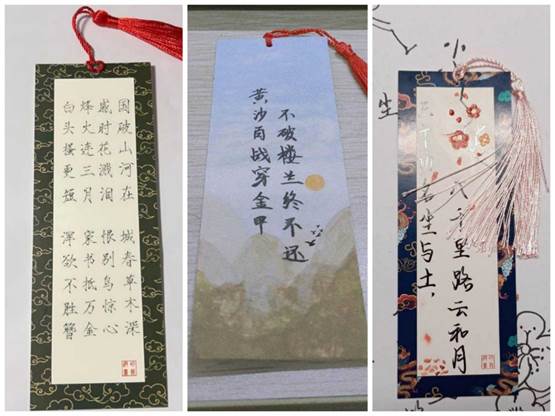 国破山河在 城春草木深
感时花溅泪 恨别鸟惊心
烽火连三月 家书抵万金
白头搔更短 浑欲不胜簪
黄沙百战穿金甲
不破楼兰终不还
生
名尘与土，
八千里路云和月